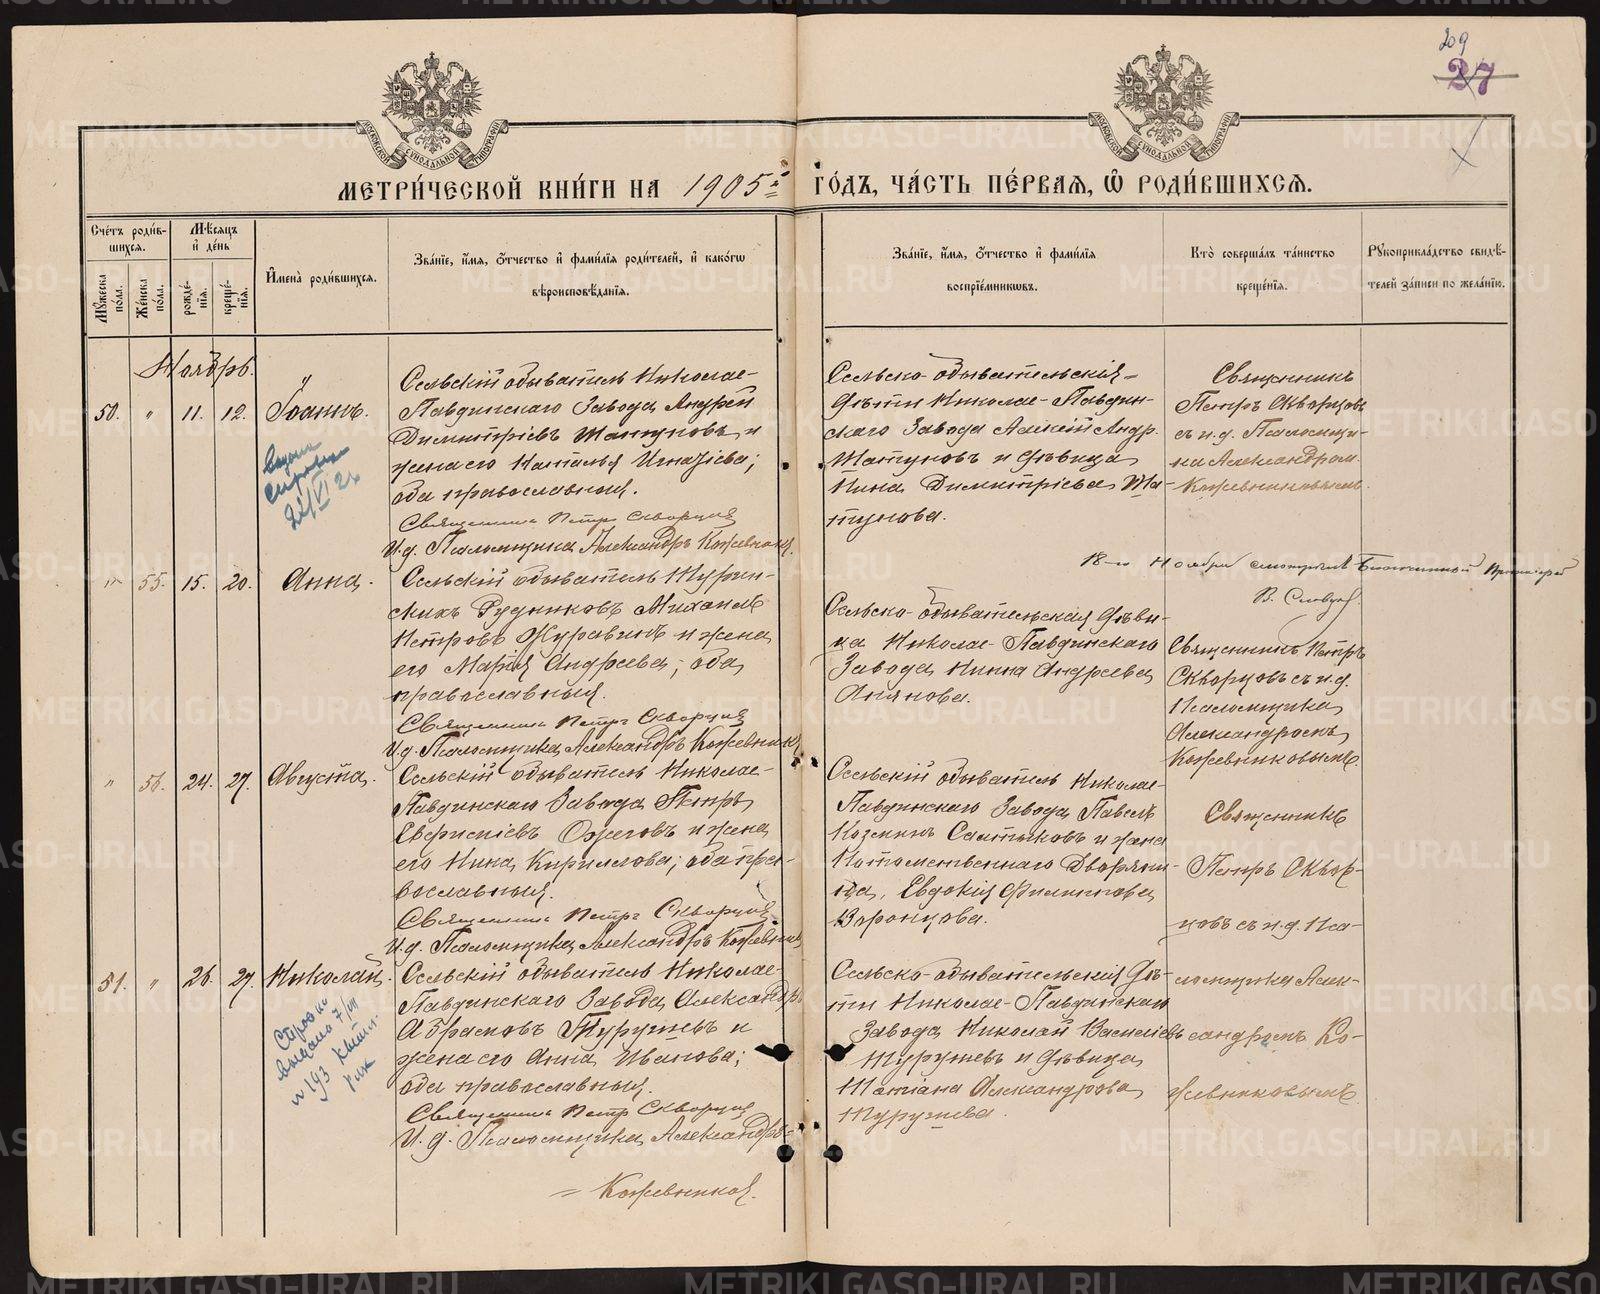 209
27
МОСКОВСКОЙ СѴНОДАЛЬНОЙ ТИПОГРАФІИ
МОСКОВСКОЙ СѴНОДАЛЬНОЙ ТИПОГРАФІИ
МЕТРИ́ЧЕСКОЙ КНИ́ГИ НА 1905й ГО́ДЪ, ЧА́СТЬ ПЕ́РВАЯ, Ѡ҆ РОДИ́ВШИХСЯ.
Сче́тъ роди́в-
шихся.
Мꙋ́жеска пола.
Же́нска по́ла.
Мѣ́сяцъ
и҆ де́нь
рожде́-
нїя.
креще́-
нїя.
И҆мена̀ роди́вшихся.
Зва́нїе, и҆́мя, ѻ҆́тчество и҆ фами́лїя роди́телей, и҆ како́гѡ
вѣроисповѣ́данїя.
Зва́нїе, и҆́мя, ѻ҆́тчество и҆ фами́лїя
воспрїе́мникѡвъ.
Кто̀ соверша́лъ та́инство
креще́нїя.
Рꙋкоприкла́дство свидѣ́-
телей за́писи по жела́нїю.
Ноябрь.
50. " 11. 12. Іоаннъ.
Сельскій обыватель Николае-
Павдинскаго Завода Андрей
Димитріевъ Шатуновъ и
жена его Наталья Игнатіева;
оба православныя.
Священникъ Петръ Скворцовъ
И.д. Псаломщика Александръ Кожевников
Сельско-обывательскія
дѣти Николае-Павдин-
скаго Завода Алексій Андр.
Шатуновъ и дѣвица
Нина Димитріева Ша-
тунова.
Священникъ
Петръ Скворцовъ
съ и.д. Псаломщи-
ка Александром
Кожевниковымъ.
18-го Ноября смотрѣлъ Благочинный Протоіерей
" 55. 15. 20. Анна.
Сельскій обыватель Турьин-
скихъ Рудниковъ Михаилъ
Петровъ Журавинъ и жена
его Марія Андреева; оба
православныя.
Священникъ Петръ Скворцовъ
И.д. Псаломщика Александръ Кожевников
Сельско-обывательская дѣви-
ца Николае-Павдинскаго
Завода Нина Андреева
Священникъ Петръ
Скворцовъ съ и.д.
Псаломщика
Александромъ
Кожевниковымъ
" 56. 24. 27. Августа.
Сельскій обыватель Николае-
Павдинскаго Завода Петръ
Ожеговъ и жена
его Нина Кириллова; оба пра-
вославныя.
Священникъ Петръ Скворцовъ
И.д. Псаломщика Александръ Кожевник
Сельскій обыватель Николае-
Павдинскаго Завода Павелъ
Козминъ Салтыковъ и жена
Потомственнаго Дворяни-
на, Евдокія Филиппова
Воронцова.
Священникъ
Петръ Сквор-
цовъ съ и.д. Пса-
ломщика Алек-
сандромъ Ко-
жевниковымъ
51. " 26. 27. Николай.
Сельскій обыватель Николае-
Павдинскаго Завода Александръ
Абрамовъ Турушевъ и
жена его Анна Иванова;
оба православныя.
Священникъ Петръ Скворцовъ
И.д. Псаломщика Александръ
Кожевников
Сельско-обывательскія дѣ-
ти Николае-Павдинскаго
Завода Николай Васильевъ
Турушевъ и дѣвица
Татіана Александрова
Турушева.
METRIKI.GASO-URAL.RU